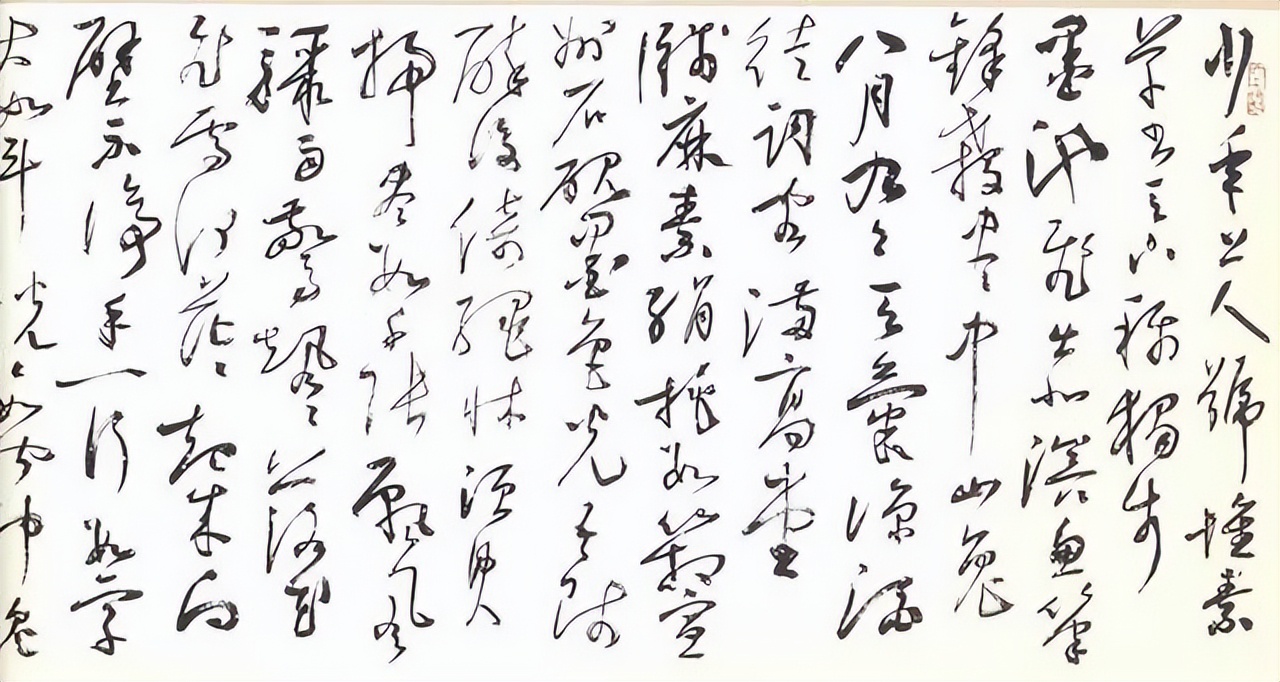 少年上人號懷素
草書天下稱獨步
墨池飛出北溟魚筆
鋒殺盡中山兔
八月九月天氣涼酒
徒詞客滿高堂
牋麻素絹排數箱宣
州石硯墨色光吾師
醉後倚繩床須臾
掃盡數千張飄風
驟雨驚颯颯落花
飛雪何茫茫起來向
壁不停手一行數字
大如斗恍恍如聞神鬼